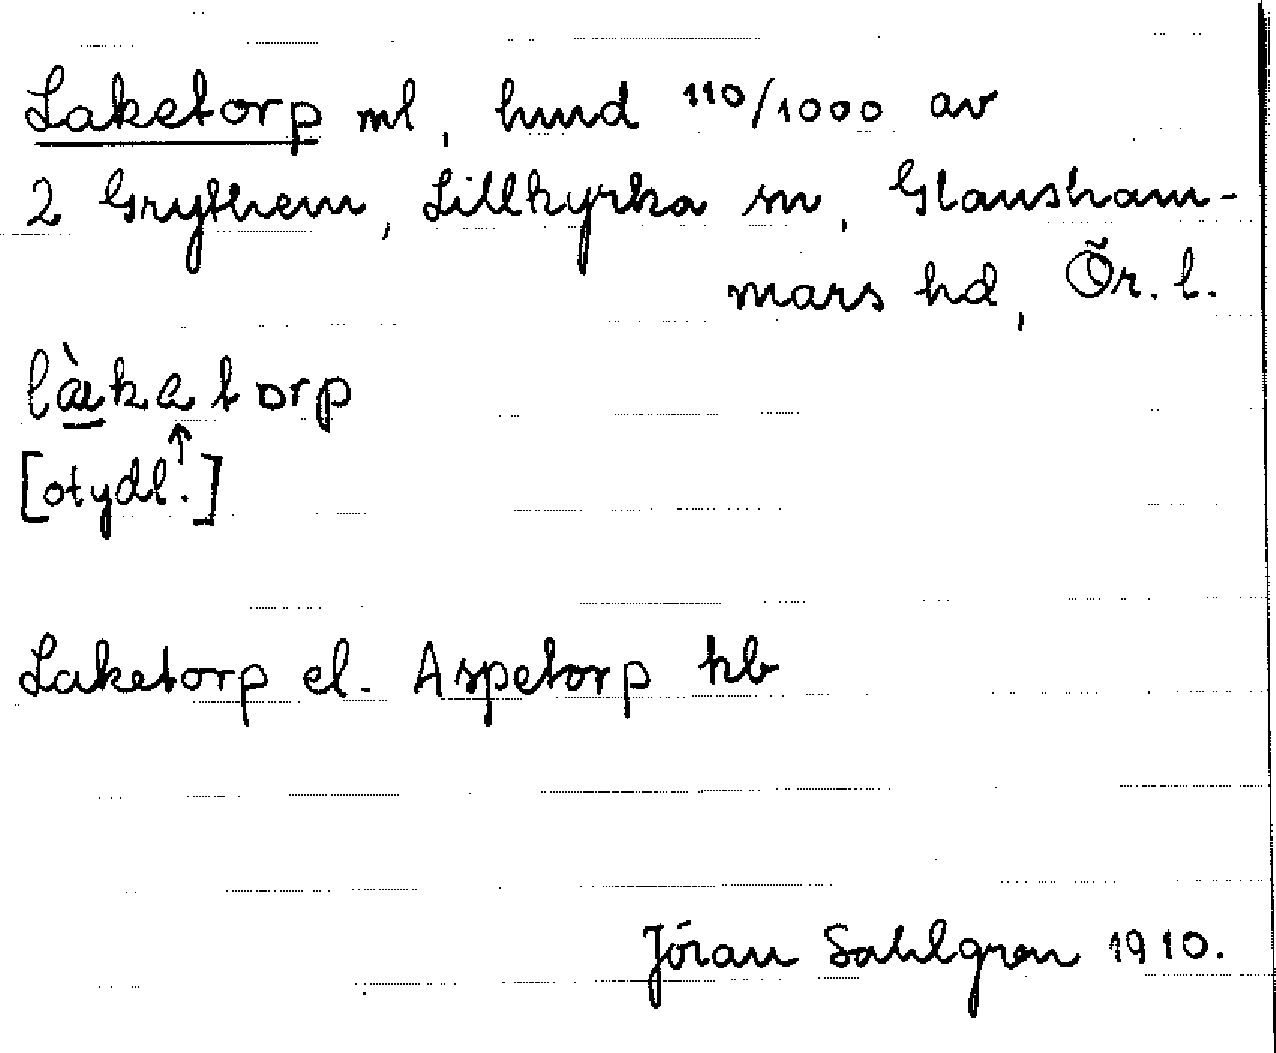 Laketorp ml, hmd 110/1000 av
2 Grythem, Lillkyrka sn, Glansham-
mars hd, Ör. l.
làkatorp
[otydl.↑]
Laketorp el. Aspetorp kb
Jöran Sahlgren 1910.